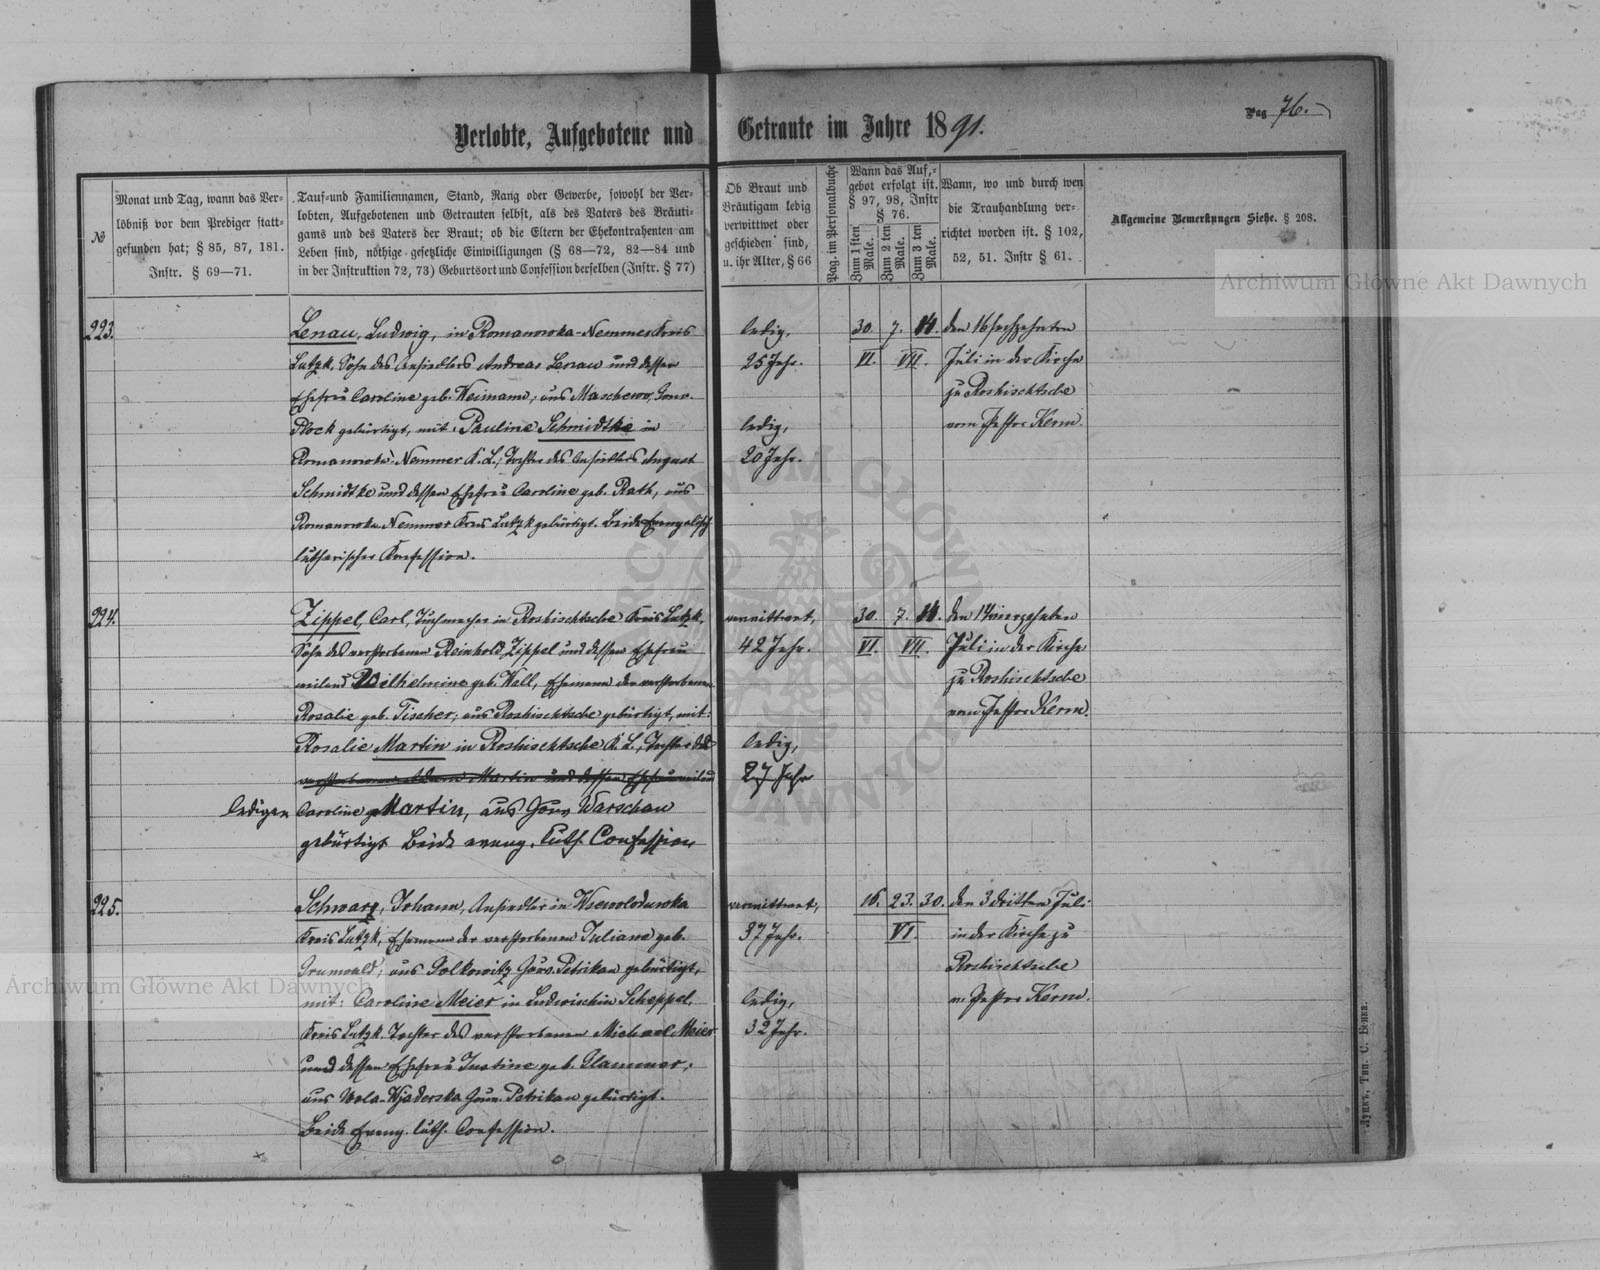 Pag 76.
Verlobte, Aufgebotene und Getraute im Jahre 1891.
№
Monat und Tag, wann das Ver-
löbniß vor dem Prediger statt-
gefunden hat; § 85, 87, 181.
Instr. § 69—71.
Tauf-und Familiennamen, Stand, Rang oder Gewerbe, sowohl der Ver-
lobten, Aufgebotenen und Getrauten selbst, als des Vaters des Bräuti-
gams und des Vaters der Braut; ob die Eltern der Ehekontrahenten am
Leben sind, nöthige gesetzliche Einwilligungen (§ 68—72, 82—84 und
in der Instruktion 72, 73) Geburtsort und Confession derselben (Instr. § 77)
Ob Braut und
Bräutigam ledig
verwittwet oder
geschieden sind,
u. ihr Alter, § 66
Pag. im Personalbuche
Wann das Auf-
gebot erfolgt ist.
§ 97, 98, Instr
§ 76.
Zum 1 sten Male.
Zum 2 ten Male.
Zum 3 ten Male.
Wann, wo und durch wen
die Trauhandlung ver-
richtet worden ist. § 102,
52, 51. Instr § 61.
Allgemeine Bemerkungen Siehe. § 208.
Archiwum Główne Akt Dawnych
223.
Lenau, Ludwig, in Romanowka-Nemmer Kreis
Lutzk, Sohn des Ansiedlers Andreas Lenau und dessen
Ehefrau Caroline geb. Neimann, aus Maschewo, Gouv.
Plock gebürtigt, mit: Pauline Schmidtke in
Romanowka-Nemmer K. L., Tochter des Ansiedlers August
Schmidtke und dessen Ehefrau Caroline geb. Rath, aus
Romanowka-Nemmer Kreis Lutzk gebürtigt. Beide Evangelisch
lutherischer Konfession.
ledig,
25 Jahr.
ledig,
20 Jahr.
30. 7. 14.
VI. VII.
den 16 sechzehnten
Juli in der Kirche
zu Roshischtsche
vom Pastor Kerm.
224.
Zippel, Carl, Tuchmacher in Roshischtsche Kreis Lutzk,
Sohn des verstorbenen Reinhold Zippel und dessen Ehefrau
weiland Wilhelmine geb. Wall, Ehemann der verstorbenen
Rosalie geb. Tischer, aus Roshischtsche gebürtigt, mit:
Rosalie Martin in Roshischtsche K. L., Tochter der
verstorbenen Martin und dessen Ehefrau weiland
ledigen Caroline Martin, aus Gouv Warschau
gebürtigt Beide evang. luth. Confession
verwittwet,
42 Jahr.
ledig,
27 Jahr
30. 7. 14.
VI. VII.
den 14 vierzehnten
Juli in der Kirche
zu Roshischtsche
vom Pastor Kerm.
225.
Schwarz, Johann, Ansiedler in Wsewolodowka
Kreis Lutzk, Ehemann der verstorbenen Juliane geb.
Grunwald, aus Golkowitz Gouv. Petrikau gebürtigt,
mit: Caroline Meier in Ludwischin Scheppel,
Kreis Lutzk. Tochter des verstorbenen Michael Meier
und dessen Ehefrau Justine geb. Glammer,
aus Wola-Wjaderska Gouv. Petrikau gebürtigt.
Beide Evang. luth. Confession.
verwittwet,
37 Jahr.
ledig,
32 Jahr.
16. 23. 30.
VI.
den 3 dritten Juli
in der Kirche zu
Roshischtsche
v. Pastor Kerm.
Archiwum Główne Akt Dawnych
Луцкъ, Тип. С. Бонка.